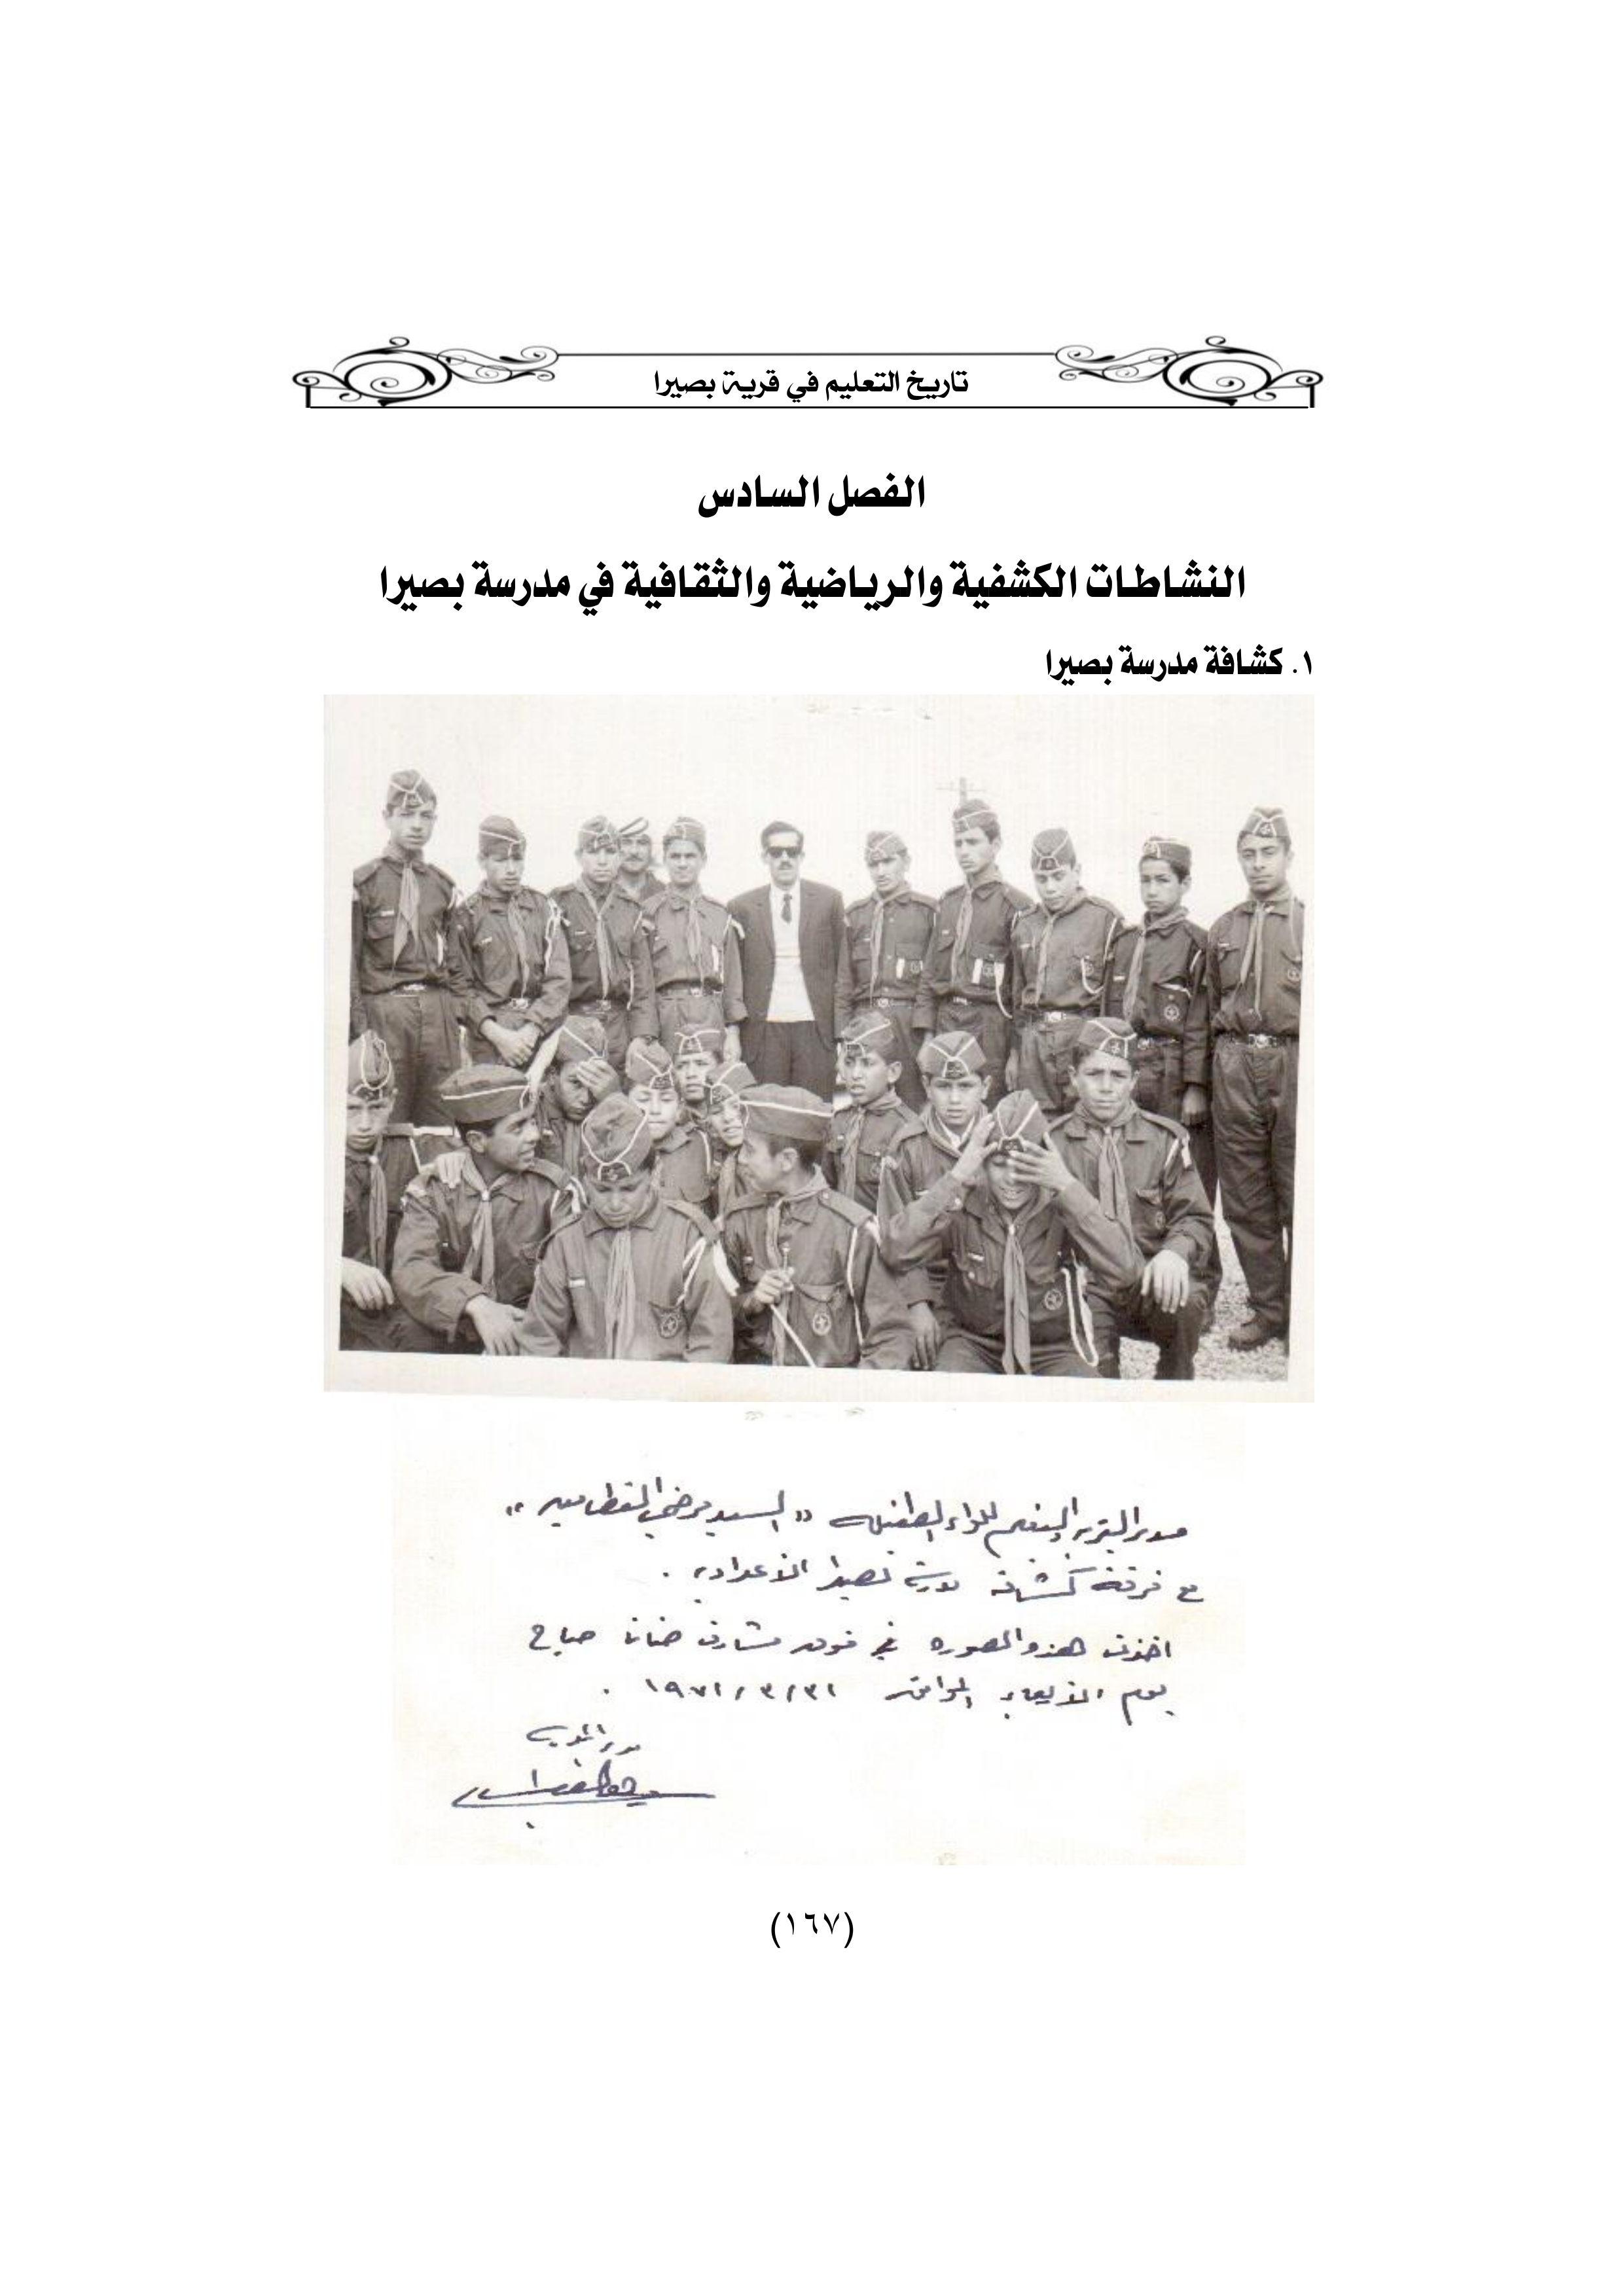 تاريخ التعليم في قرية بصيرا
الفصل السادس
النشاطات الكشفية والرياضية والثقافية في مدرسة بصيرا
١. كشافة مدرسة بصيرا
مدير التربية والتعليم للواء الطفيله "السيد مرضي القطامين"
مع فرقة كشافة مدرسة بصيرا الاعدادية .
اخذت هذه الصوره في مشارف ضانا صباح
يوم الاربعاء الموافق ٣١/٣/١٩٧١ .
مدير المدرسة
(١٦٧)